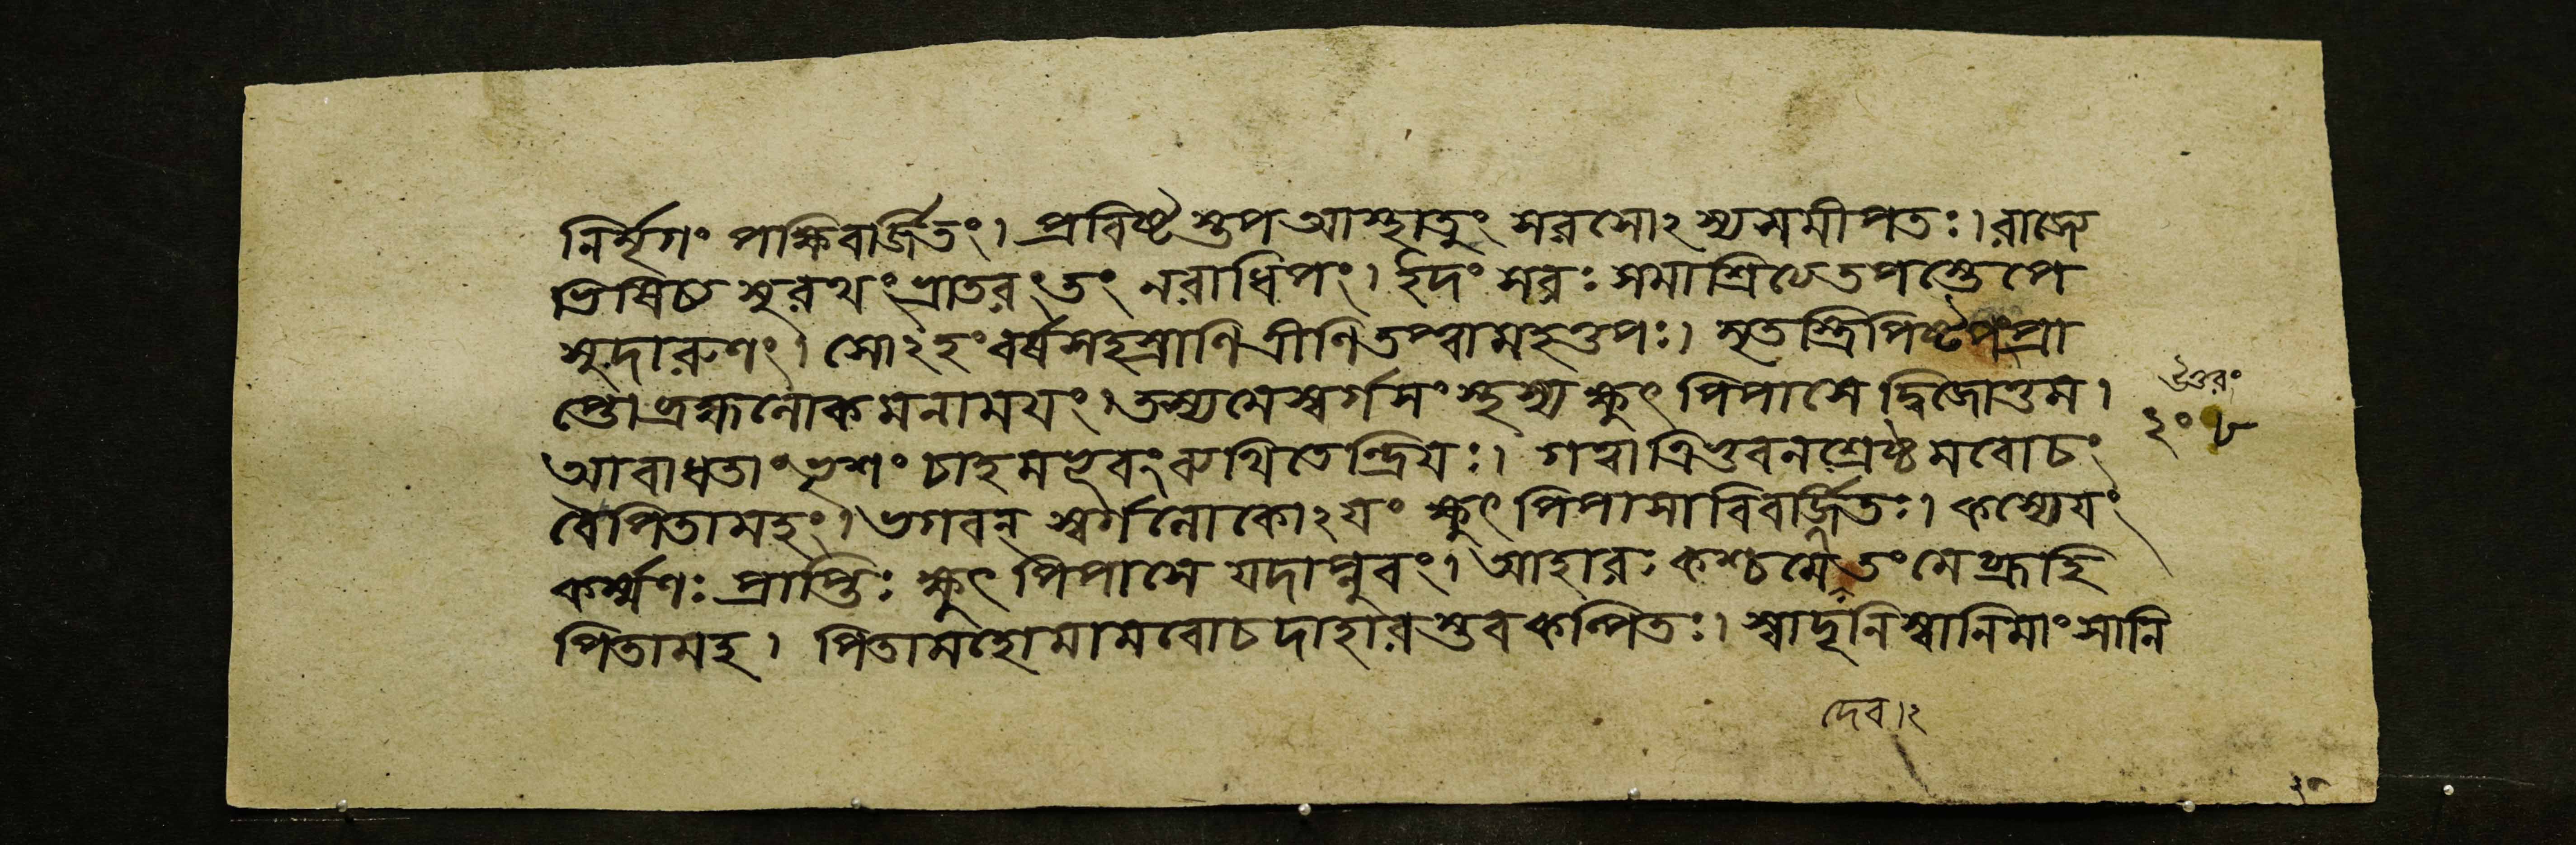 নির্মৃগং পক্ষিবর্জিতং। প্রবিষ্টস্তপআস্থাতুং সরসোঽস্যসমীপতঃ। রাজ্যে
ভিষিচ্য সুরথং ভ্রাতরং তং নরাধিপং। ইদং সরঃ সমাশ্রিত্যতপস্তেপে
সুদারুণং। সোঽহং বর্ষসহস্রাণি ত্রীণি তপ্ত্বামহত্তপঃ। মৃতস্ত্রিপিষ্টপংপ্রা
প্তো ব্রহ্মলোকমনাময়ং। তস্যমেস্বর্গসংস্থস্য ক্ষুৎ পিপাসে দ্বিজোত্তম।
আবাধতাং ভৃশং চাহমভবং ব্যথিতেন্দ্রিয়ঃ। গত্বাত্রিভুবনশ্রেষ্ঠমবোচং
বৈপিতামহং। ভগবন্ স্বর্গলোকোঽয়ং ক্ষুৎ পিপাসাবিবর্জিতঃ। কস্যেয়ং
কর্ম্মণঃ প্রাপ্তিঃ ক্ষুৎ পিপাসে যদাপ্নুবং। আহারঃ কশ্চমে তং মে ব্রূহি
পিতামহ। পিতামহোমামবোচদাহারস্তবকল্পিতঃ। স্বাদূনিস্বানিমাংসানি
উত্তরং
২০৮
দেব।২